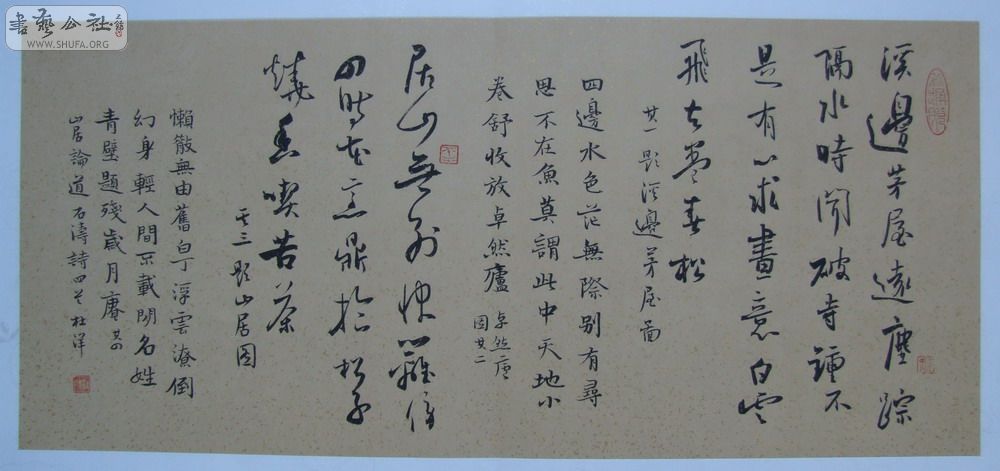 書藝公社
WWW.SHUFA.ORG
溪邊茅屋遠塵踪
隔水時聞破寺鐘不
是有心求畫意白雲
飛去卷松
其一題溪邊茅屋圖
四邊水色茫無際別有尋
思不在魚莫謂此中天地小
卷舒收放卓然廬
卓然廬
圖其二
居山無
四時花鼎拾松子
燒香喫苦茶
其三題山居圖
懶散無由舊白丁浮雲潦倒
幻身輕人間不載閑名姓
青壁題殘歲月賡其四
山居論道石濤詩四首杜洋